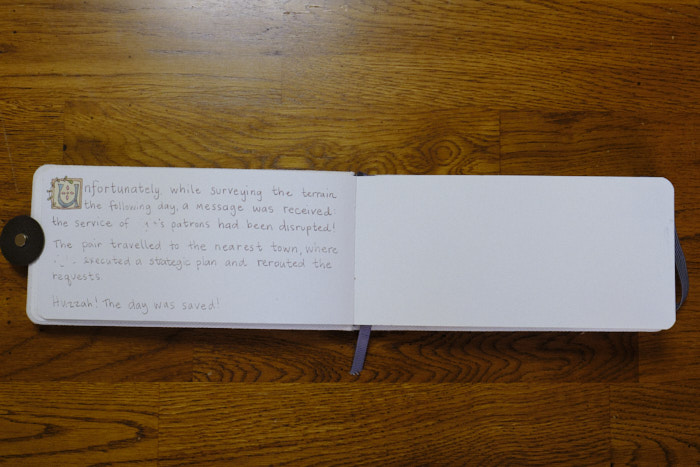 Unfortunately, while surveying the terrain
the following day, a message was received
the service of it's patrons had been disrupted!
The pair travelled to the nearest town, where
executed a strategic plan and rerouted the
requests.
Huzzah! The day was saved!